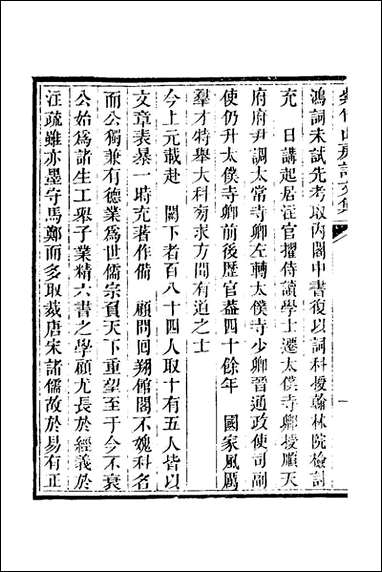 紫竹山房詩文集
鴻詞未試先考取內閣中書復以詞科授翰林院檢討
充　日講起居注官擢侍讀學士遷太僕寺卿授順天
府府尹調太常寺卿左轉太僕寺少卿晉通政使司副
使仍升太僕寺卿前後歷官葢四十餘年　國家風厲
羣才特舉大科旁求方聞有道之士
今上元載赴　闕下者百八十四人取十有五人皆以
文章表暴一時充著作備　顧問回翔館閣不媿科名
而公獨兼有德業爲世儒宗負天下重望至于今不衰
公始爲諸生工舉子業精六書之學顧尤長於經義於
注疏雖亦墨守馬鄭而多取裁唐宋諸儒故於易有正